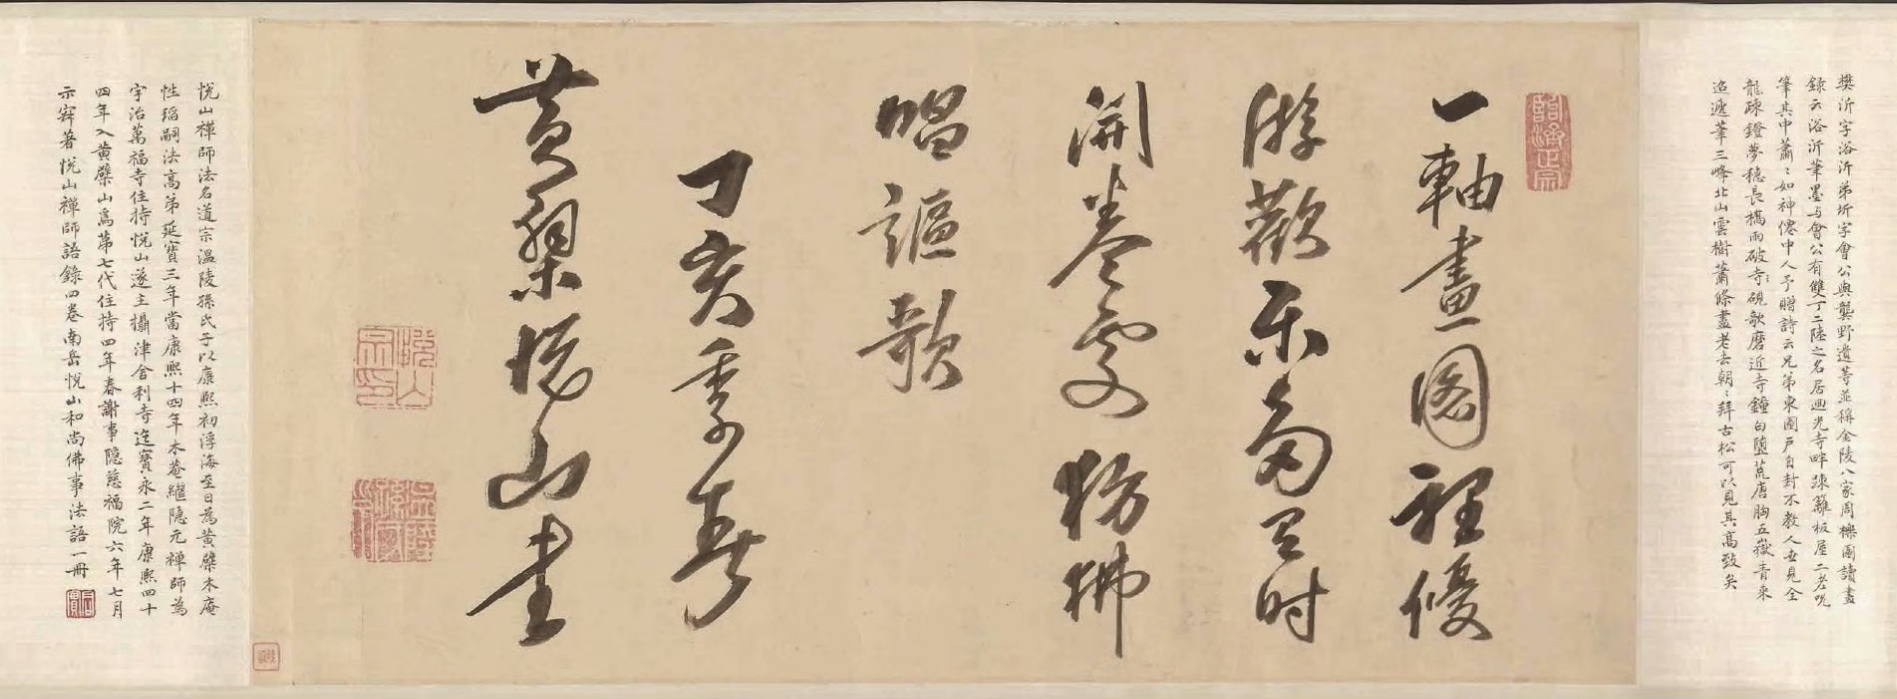 樊沂字浴沂弟圻字會公與龔野遺等並稱金陵八家周櫟園讀畫
錄云浴沂筆墨与會公有雙丁二陸之名居迴光寺畔疎籬板屋二老吮
筆其中蕭〻如神僊中人予贈詩云兄弟東園戶自封不教人世見全
龍疎鐙夢穩長橋雨破寺硯歌磨近寺鐘白墮荒唐胸五嶽青來
迢遞筆三峰北山雲樹蕭條盡老去朝〻拜古松可以見其高致矣
臨濟正宗
一軸畫圖裡優
游歡樂多三時
開卷處彷彿
唱謳歌
丁亥季春
黃檗悅山書
悅山禪師法名道宗溫陵孫氏子以康熙初浮海至日為黃檗木庵
性瑫嗣法高弟延寶三年當康熙十四年木菴繼隱元禪師為
宇治萬福寺住持悅山遂主攝津舍利寺迄寶永二年康熙四十
四年入黃檗山為第七代住持四年春謝事隱慈福院六年七月
示寂著悅山禪師語錄四卷南岳悅山和尚佛事法語一冊